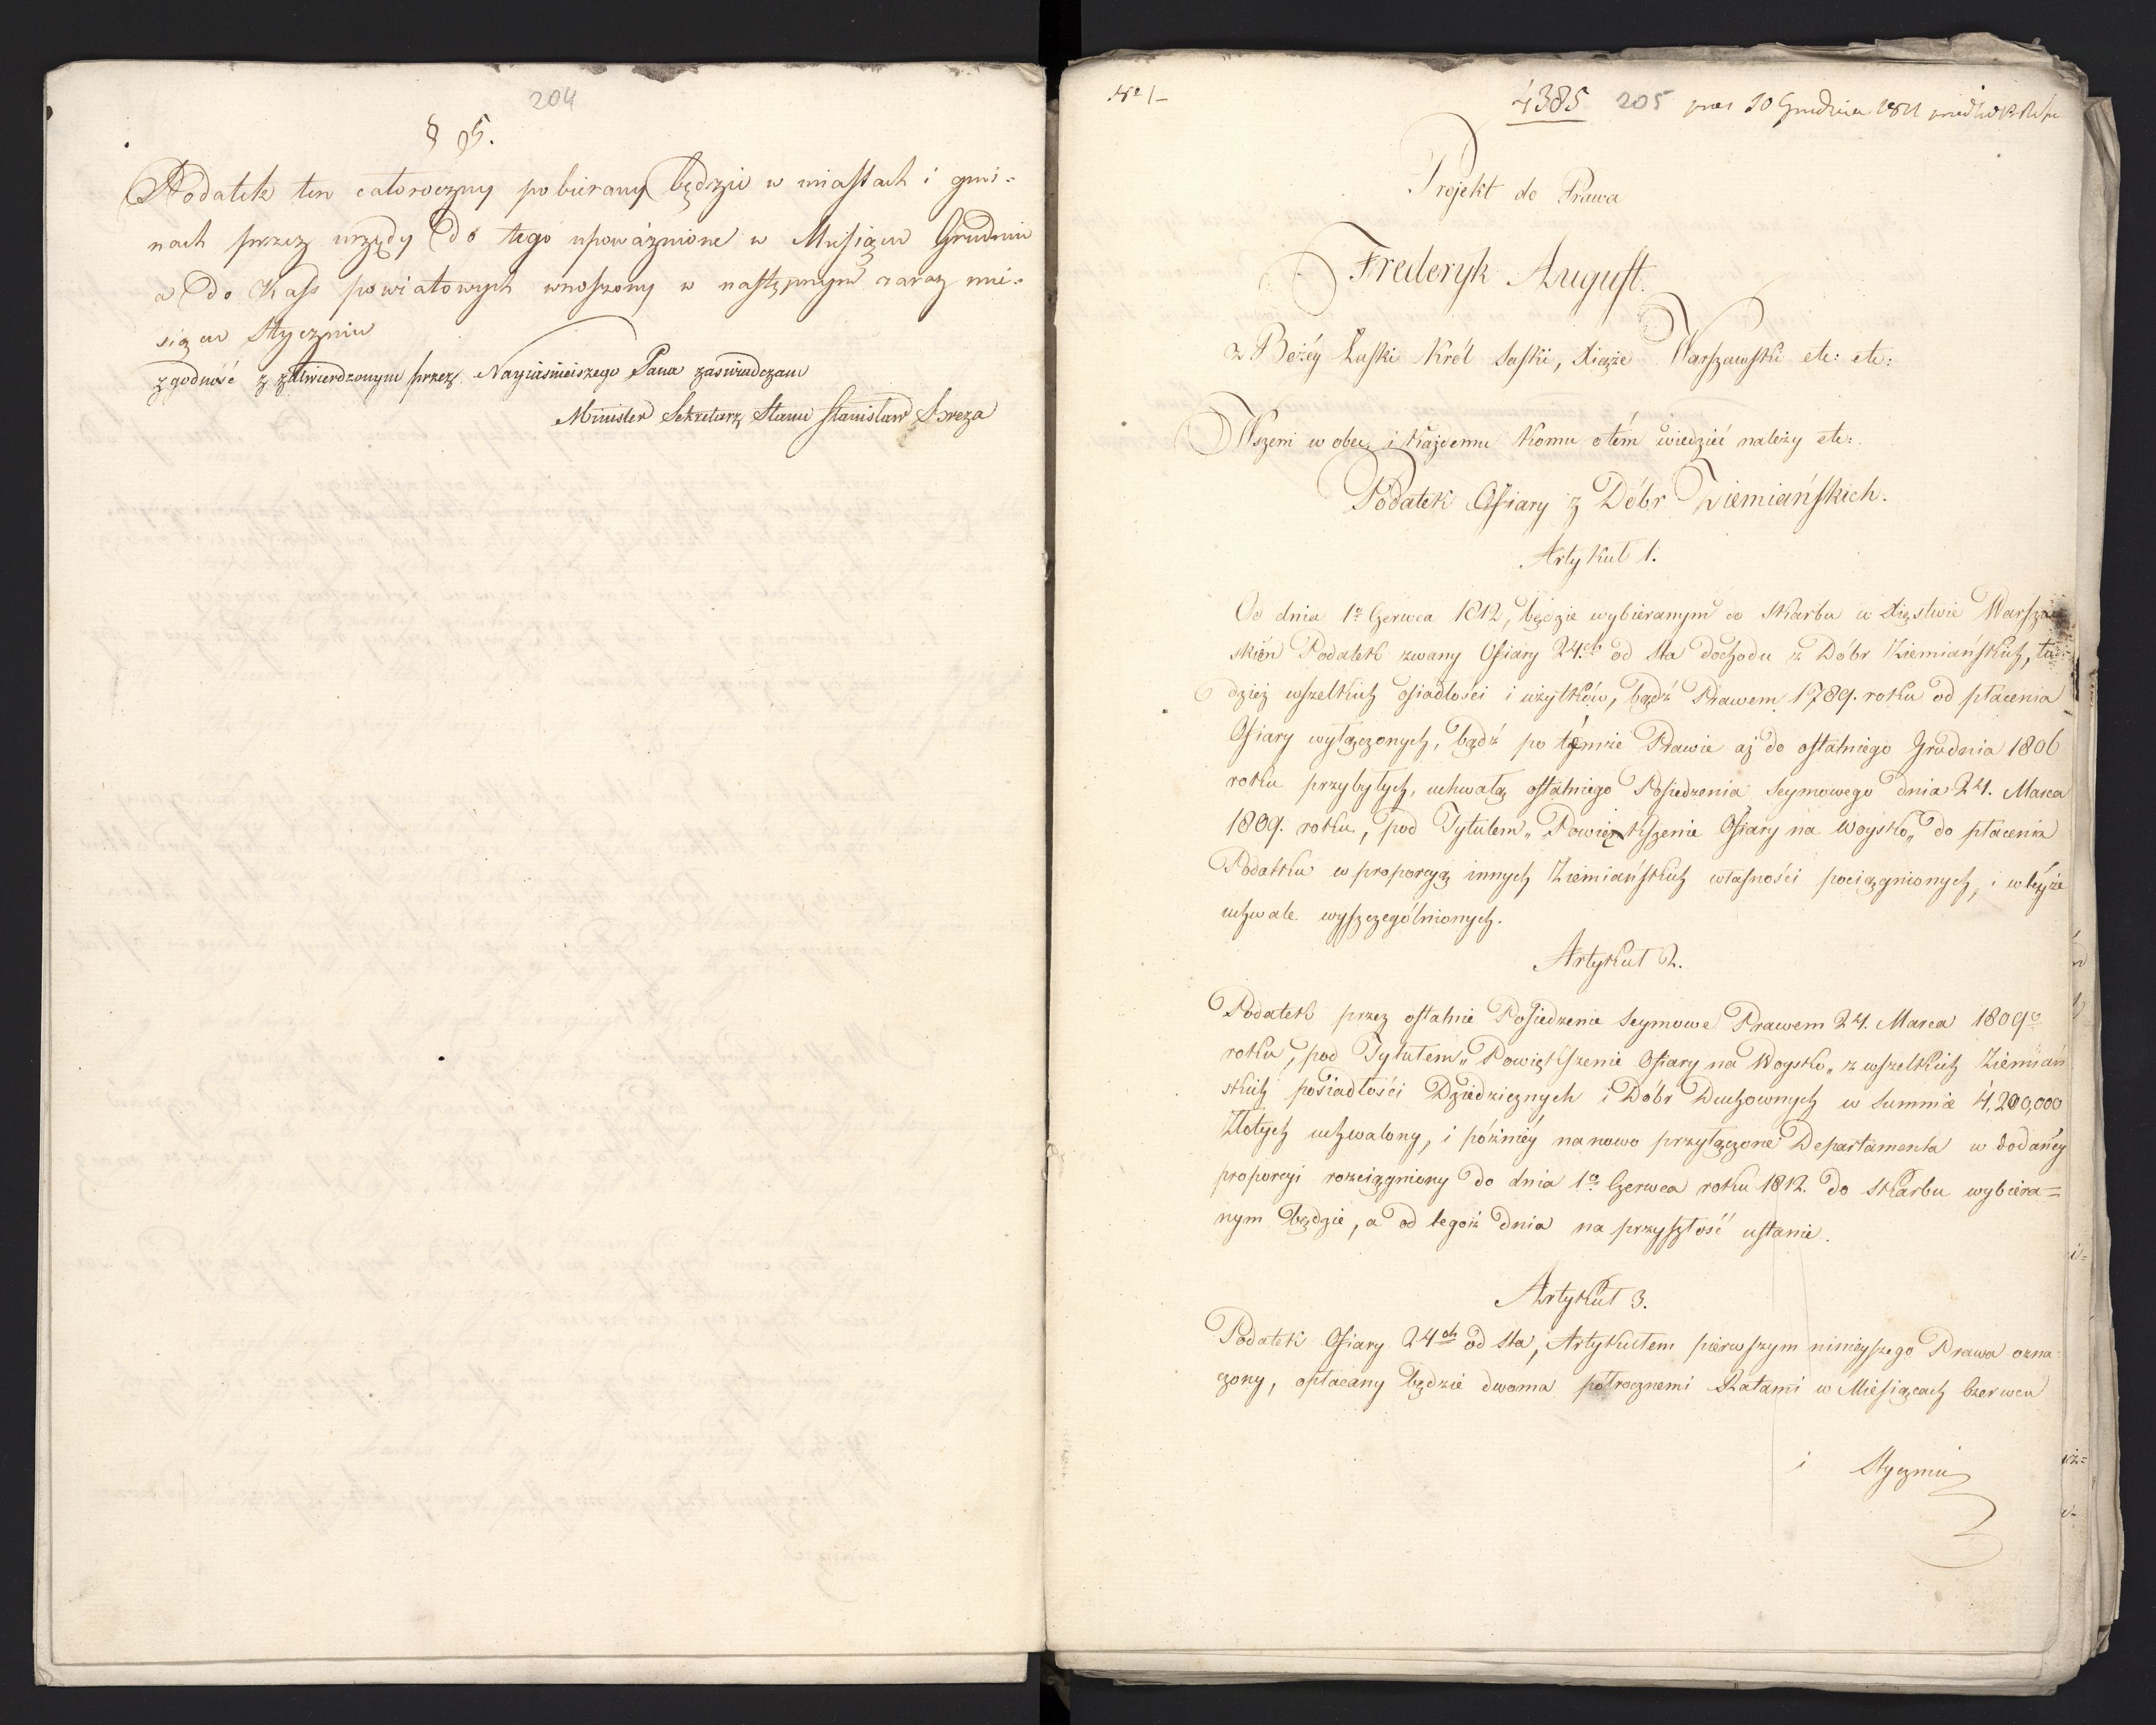 204
§ 5.
Podatek ten całoroczny pobierany będzie w miastach i gmi=
nach przez urzędy do tego upoważnione w Miesiącu Grudniu
a do Kass powiatowych wnoszony w następnym zaraz mie=
siącu Styczniu
zgodność z zatwierdzonym przez Nayiaśnieiszego Pana zaświadczam
Minister Sekretarz Stanu Stanisław Breza
Nº 1
4385 205 10 Grudnia 1811
Projekt do Prawa
Frederyk August.
z Bożéy Łaski Król Saski, Xiąże Warszawski etc: etc:
Wszem w obec i Każdemu Komu o tém wiedzieć należy etc:
Podatek Ofiary z Dóbr Ziemiańskich.
Artykuł 1.
Od dnia 1º Czerwca 1812, będzie wybieranym do Skarbu w Xięstwie Warszaw
skiém Podatek zwany Ofiary 24.ch od sta dochodu z Dóbr Ziemiańskich, tu=
dzież wszelkich osiadłości i użytków, bądź Prawem 1789. roku od płacenia
Ofiary wyłączonych, bądź po témże Prawie aż do ostatniego Grudnia 1806
roku przybyłych, uchwałą ostatniego Posiedzenia Seymowego dnia 24. Marca
1809. roku, pod Tytułem „Powiększenie Ofiary na Woysko„ do płacenia
Podatku w proporcyą innych Ziemiańskich własności pociągnionych, i w teyże
uchwale wyszczególnionych.
Artykuł 2.
Podatek przez ostatnie Posiedzenie Seymowe Prawem 24. Marca 1809º
roku, pod Tytułem „Powiększenie Ofiary na Woysko„ z wszelkich Ziemiań
skich posiadłości Dziedzicznych i Dóbr Duchownych w Summie 4,200,000
Złotych uchwalony, i późniéy na nowo przyłączone Departamenta w dodanéy
proporcyi rozciągniony do dnia 1º Czerwca roku 1812. do Skarbu wybiera=
nym będzie, a od tegoż dnia na przyszłość ustanie.
Artykuł 3.
Podatek Ofiary 24ch od sta, Artykułem pierwszym ninieyszego Prawa ozna
czony, opłacany będzie dwoma półrocznemi Ratami w Miesiącach Czerwcu
i Styczniu